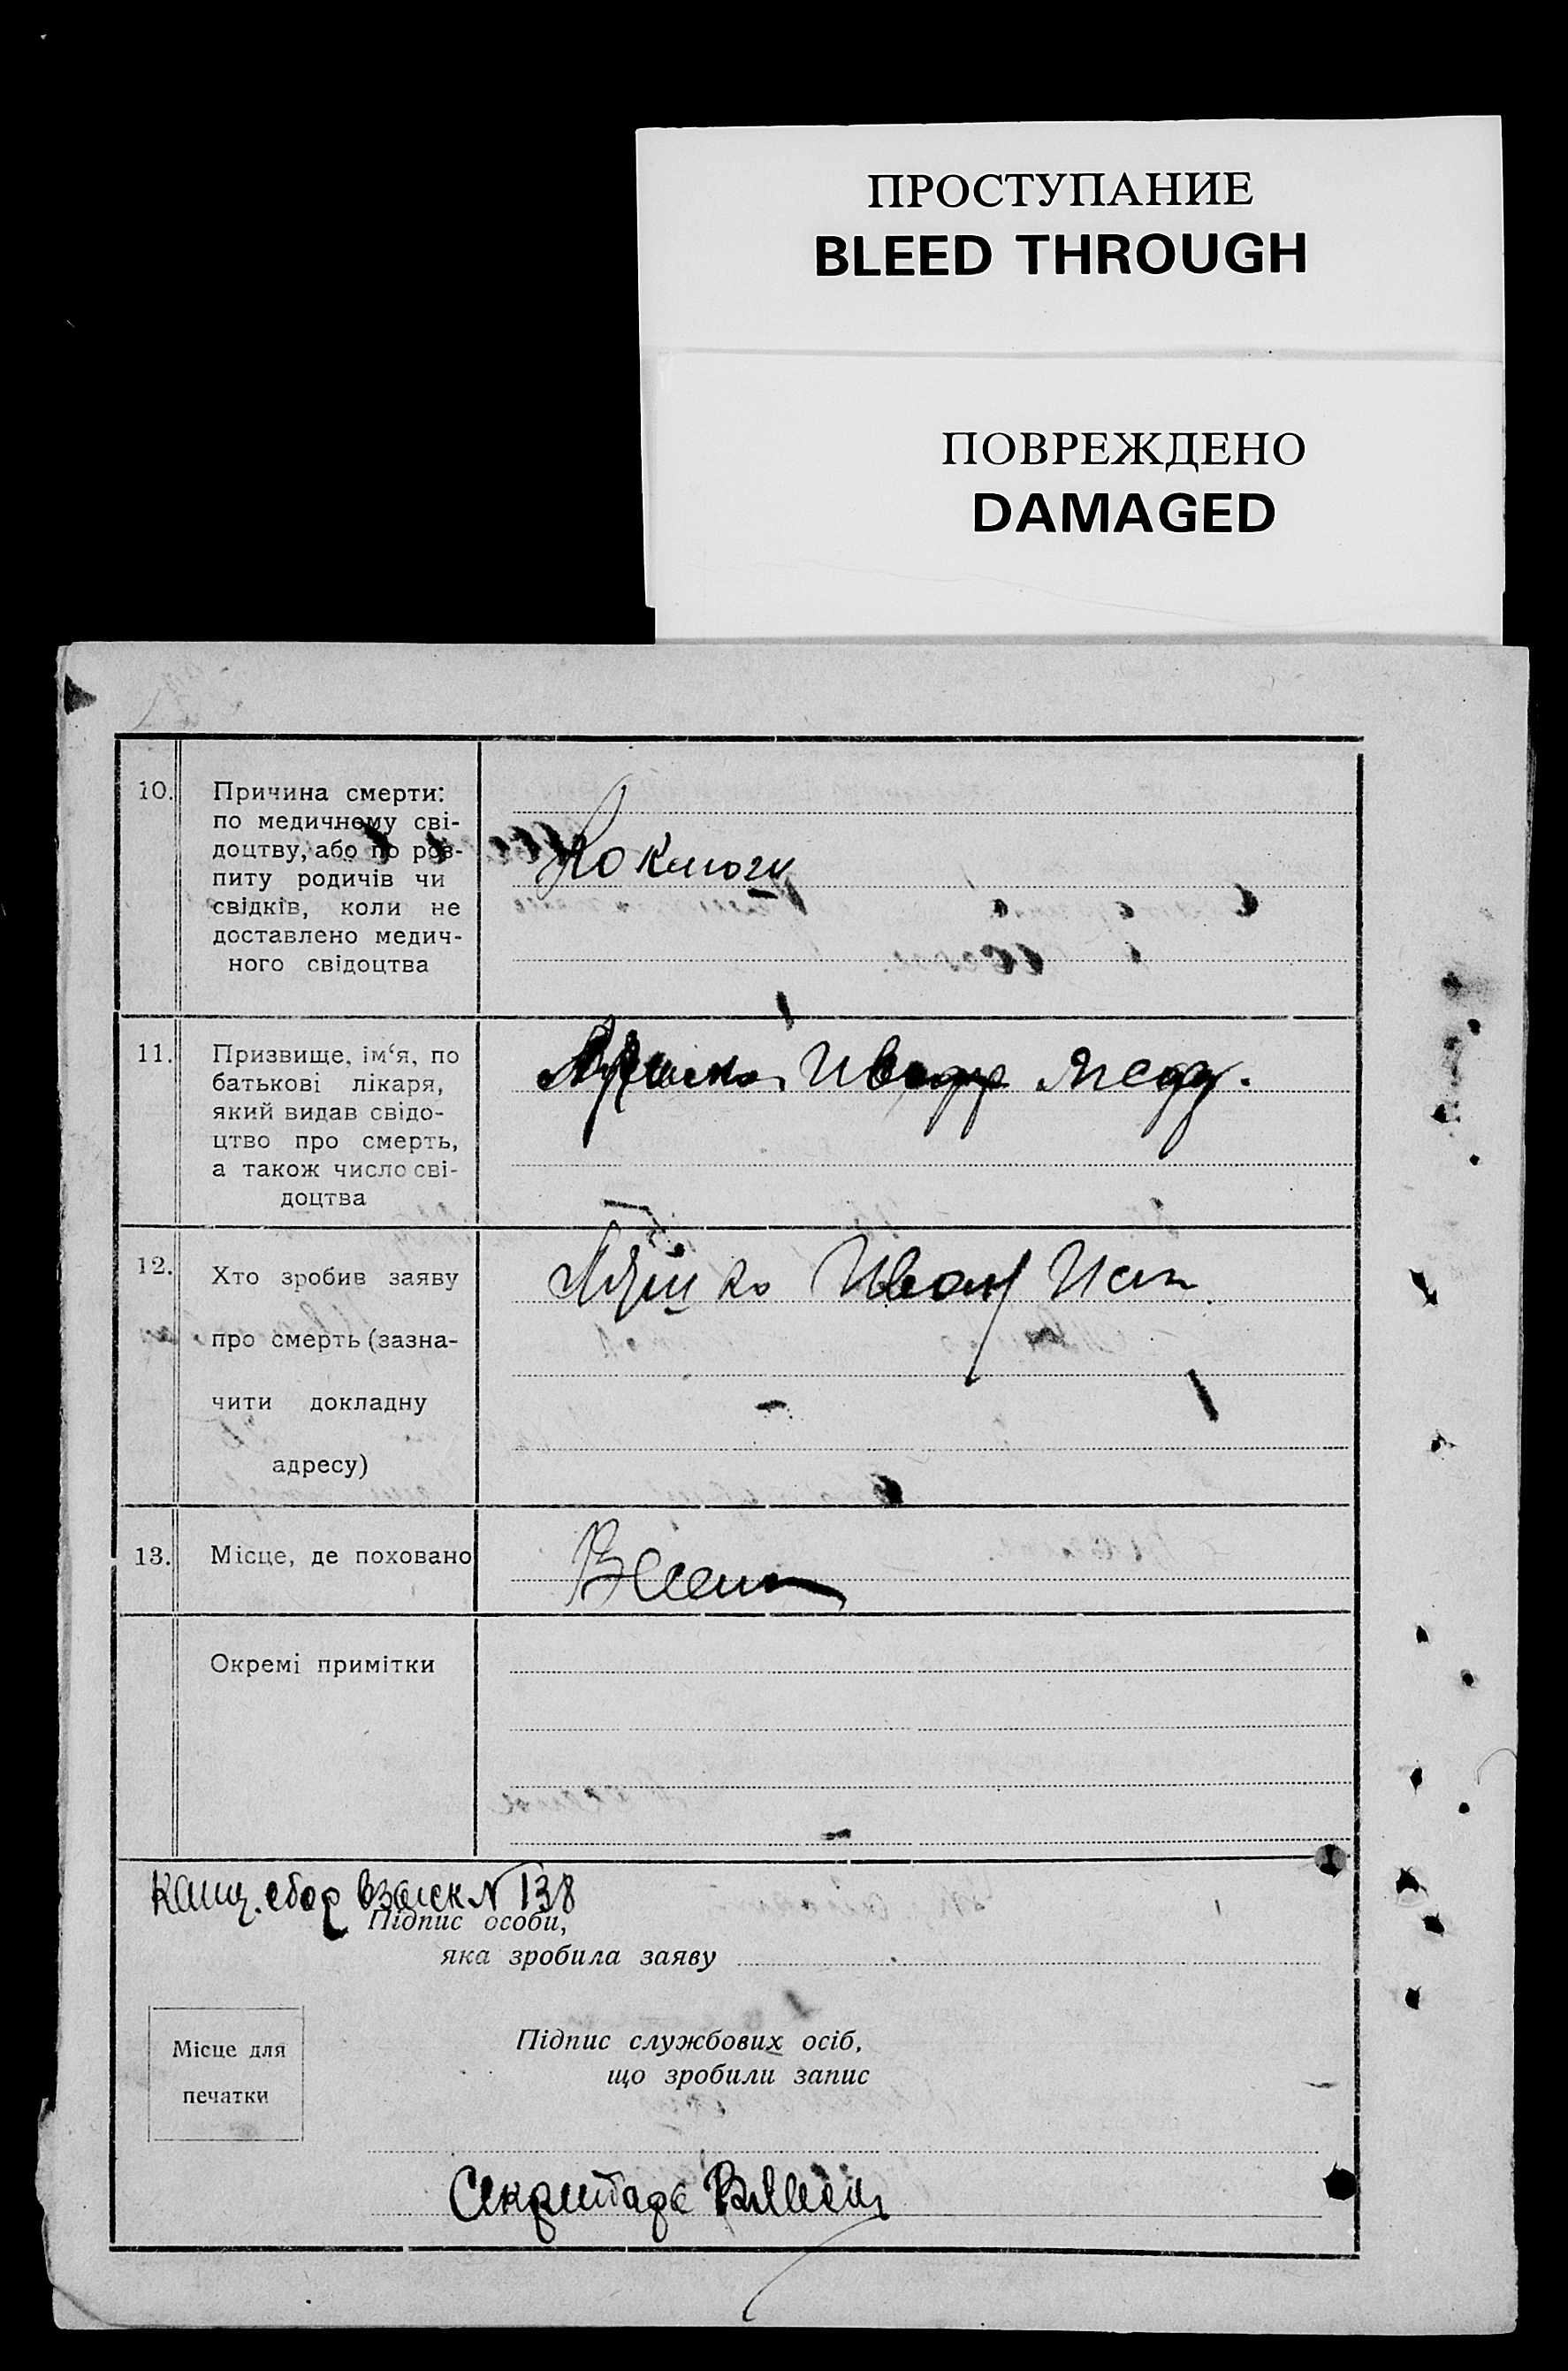 ПРОСТУПАНИЕ
BLEED THROUGH
ПОВРЕЖДЕНО
DAMAGED
10.
Причина смерти:
по медичному сві-
доцтву, або по роз-
питу родичів чи
свідків, коли не
доставлено медич-
ного свідоцтва
Коклюзи
11.
Призвище, ім‘я, по
батькові лікаря,
який видав свідо-
цтво про смерть,
а також число сві-
доцтва
12.
Хто зробив заяву
про смерть (зазна-
чити докладну
адресу)
Иван
13.
Місце, де поховано
Окремі примітки
Канц. сбор взыск N 138
Підпис особи,
яка зробила заяву
Місце для
печатки
Підпис службових осіб,
що зробили запис